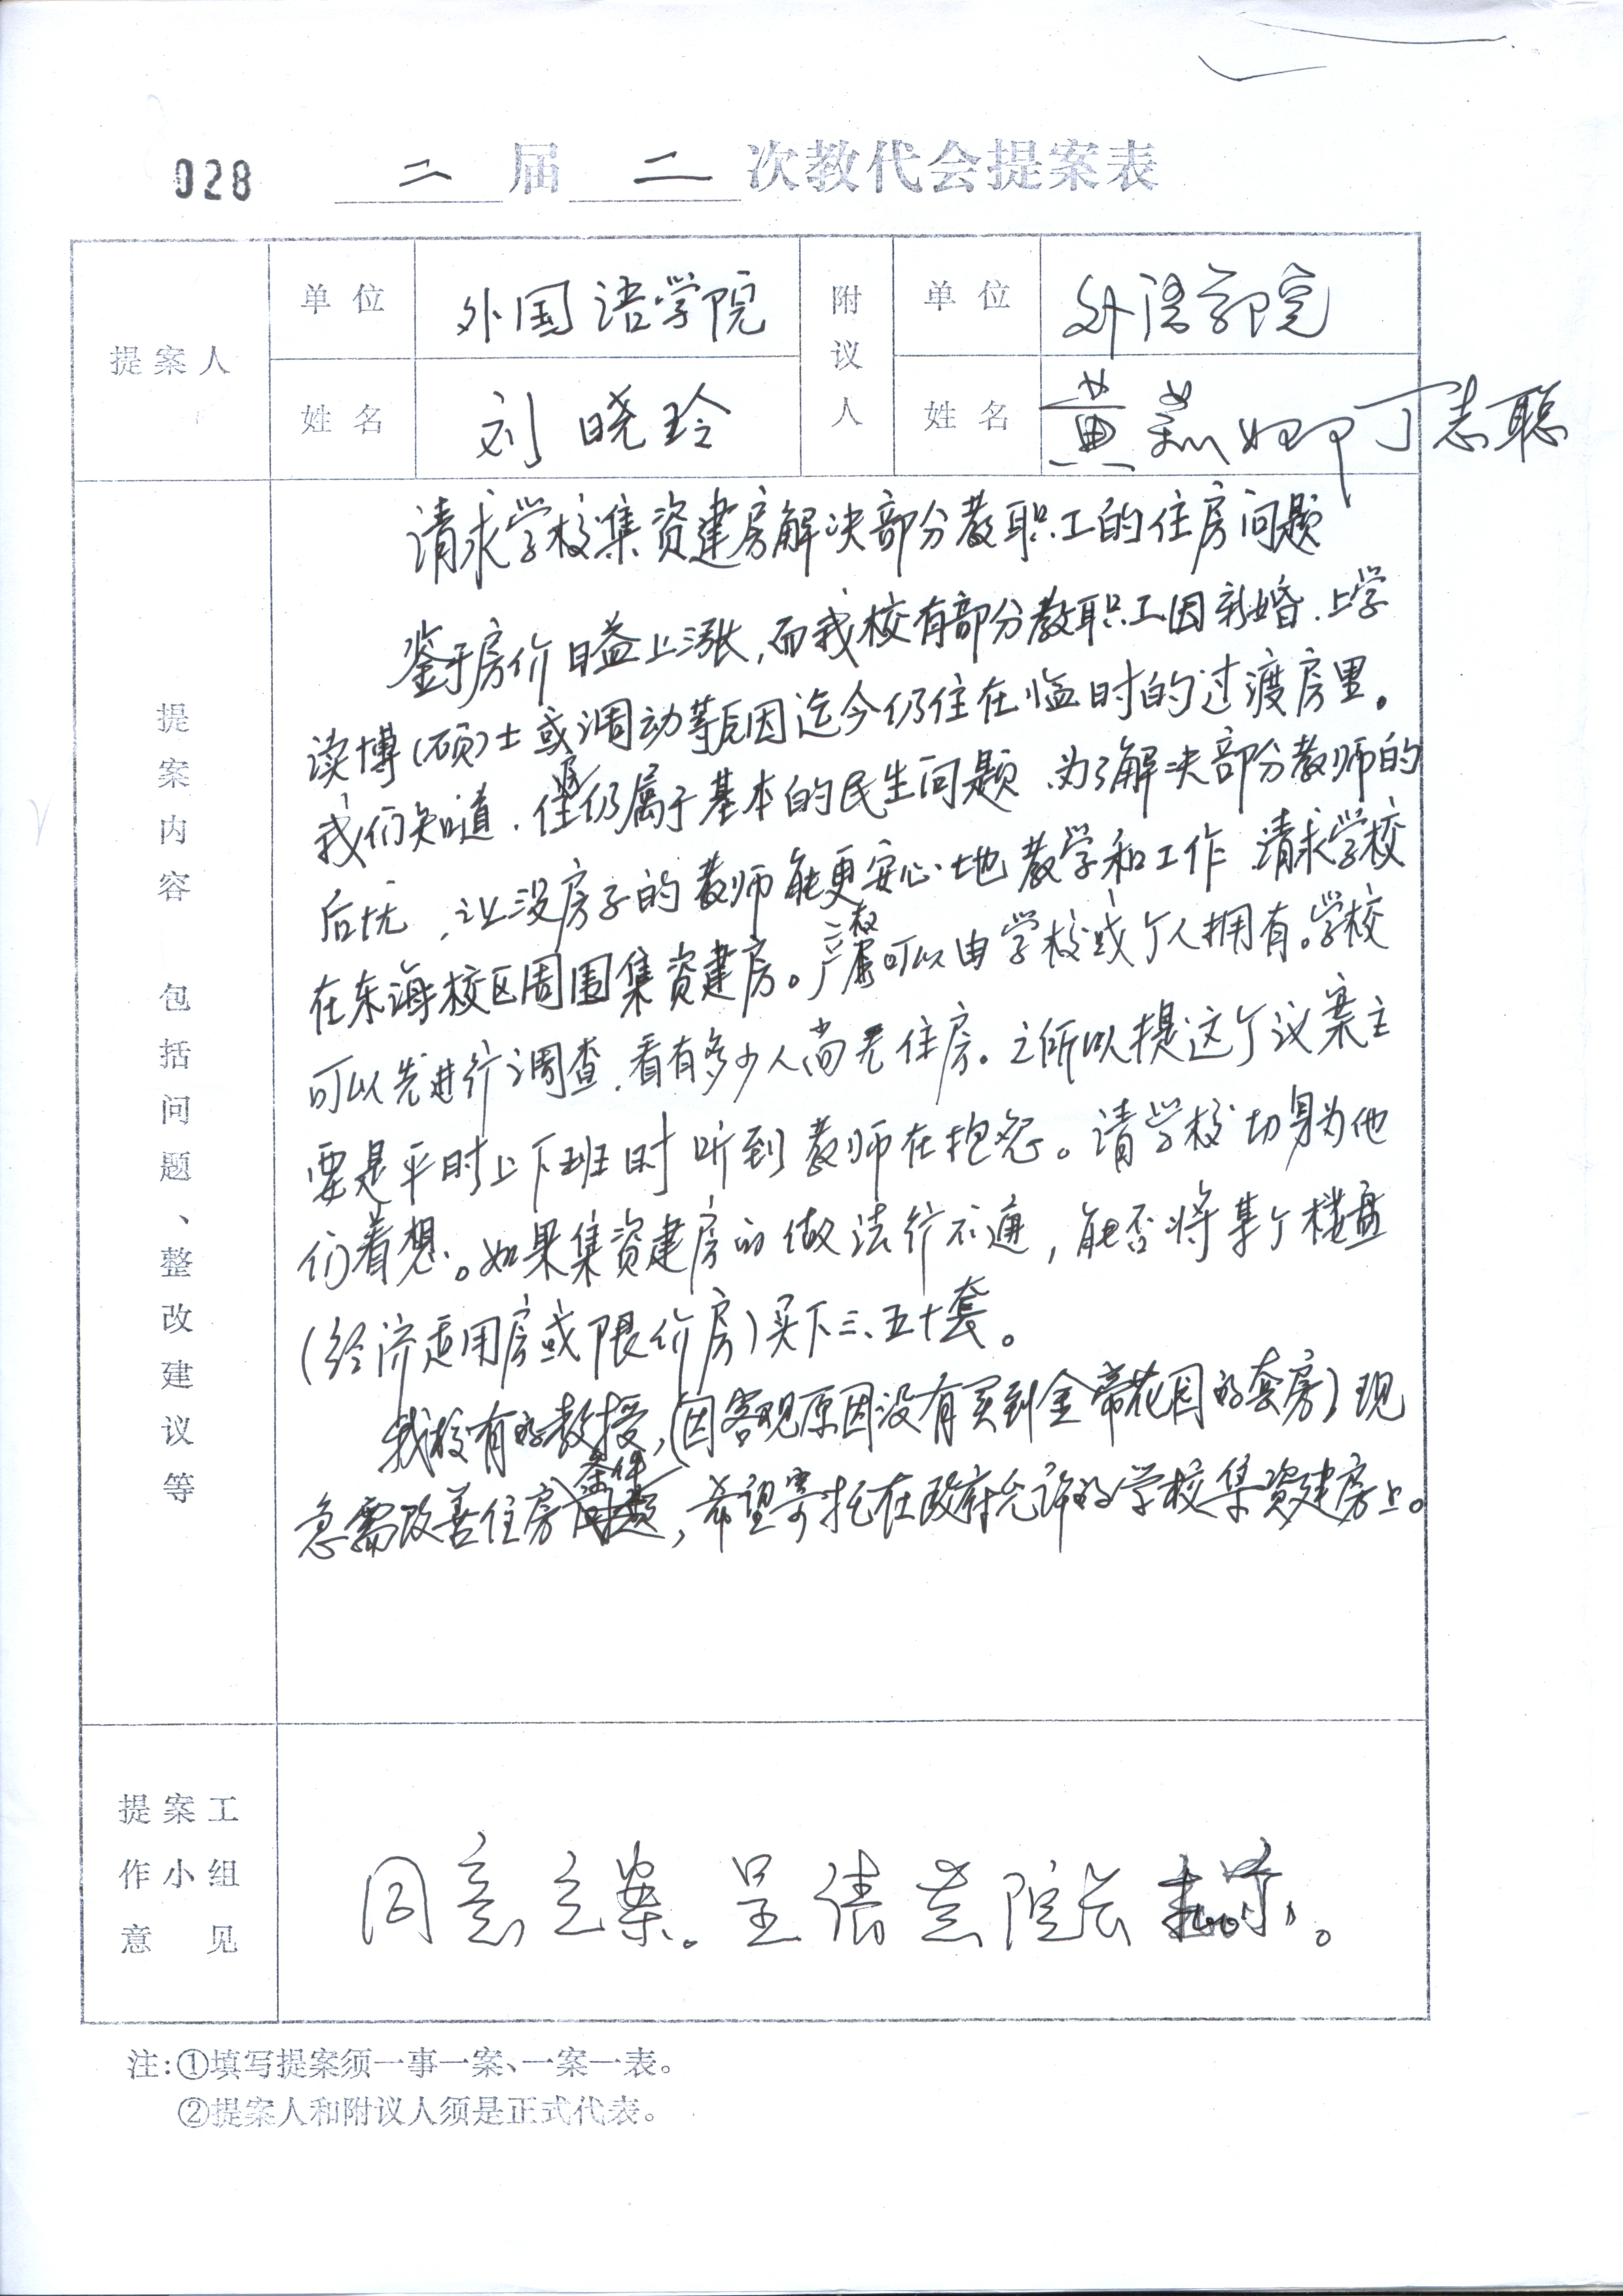 028 二届二次教代会提案表
提案人 单位 外国语学院 附议人 单位 外语学院
姓名 刘晓玲 姓名 黄 丁志聪
提案内容 包括问题、整改建议等
请求学校集资建房解决部分教职工的住房问题
鉴于房价日益上涨,而我校有部分教职工因新婚、上学
读博(硕)士或调动等原因迄今仍住在临时的过渡房里。
我们知道,住房仍属于基本的民生问题,为了解决部分教师的
后忧,让没房子的教师能更安心地教学和工作 请求学校
在东海校区周围集资建房。产权可以由学校或个人拥有。学校
可以先进行调查,看有多少人尚无住房。之所以提这个议案主
要是平时上下班时听到教师在抱怨。请学校切身为他
们着想。如果集资建房的做法行不通,能否将某个楼盘
(经济适用房或限价房)买下三、五十套。
我校有的教授,(因客观原因没有买到金帝花园的套房)现
急需改善住房条件,希望寄托在政府允许的学校集资建房上。
提案工作小组意见
同意立案。呈请黄院长
注:①填写提案须一事一案、一案一表。
②提案人和附议人须是正式代表。